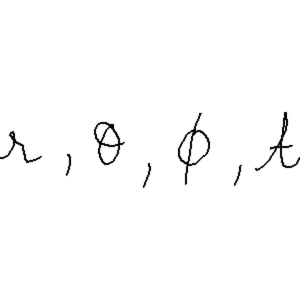 r, θ, φ, t